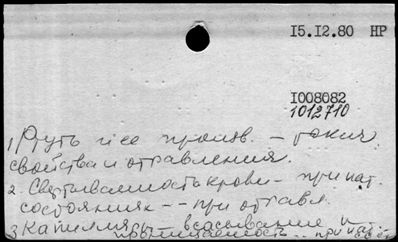 15.12.80 НР
1008082
1012710
1) Ртуть и ее произв. – токсич.
свойства и отравления.
2. Свертываемость крови – при пат.
состояниях – – при отравл.
3 Капилляры – всасывание и
проницаемость – при